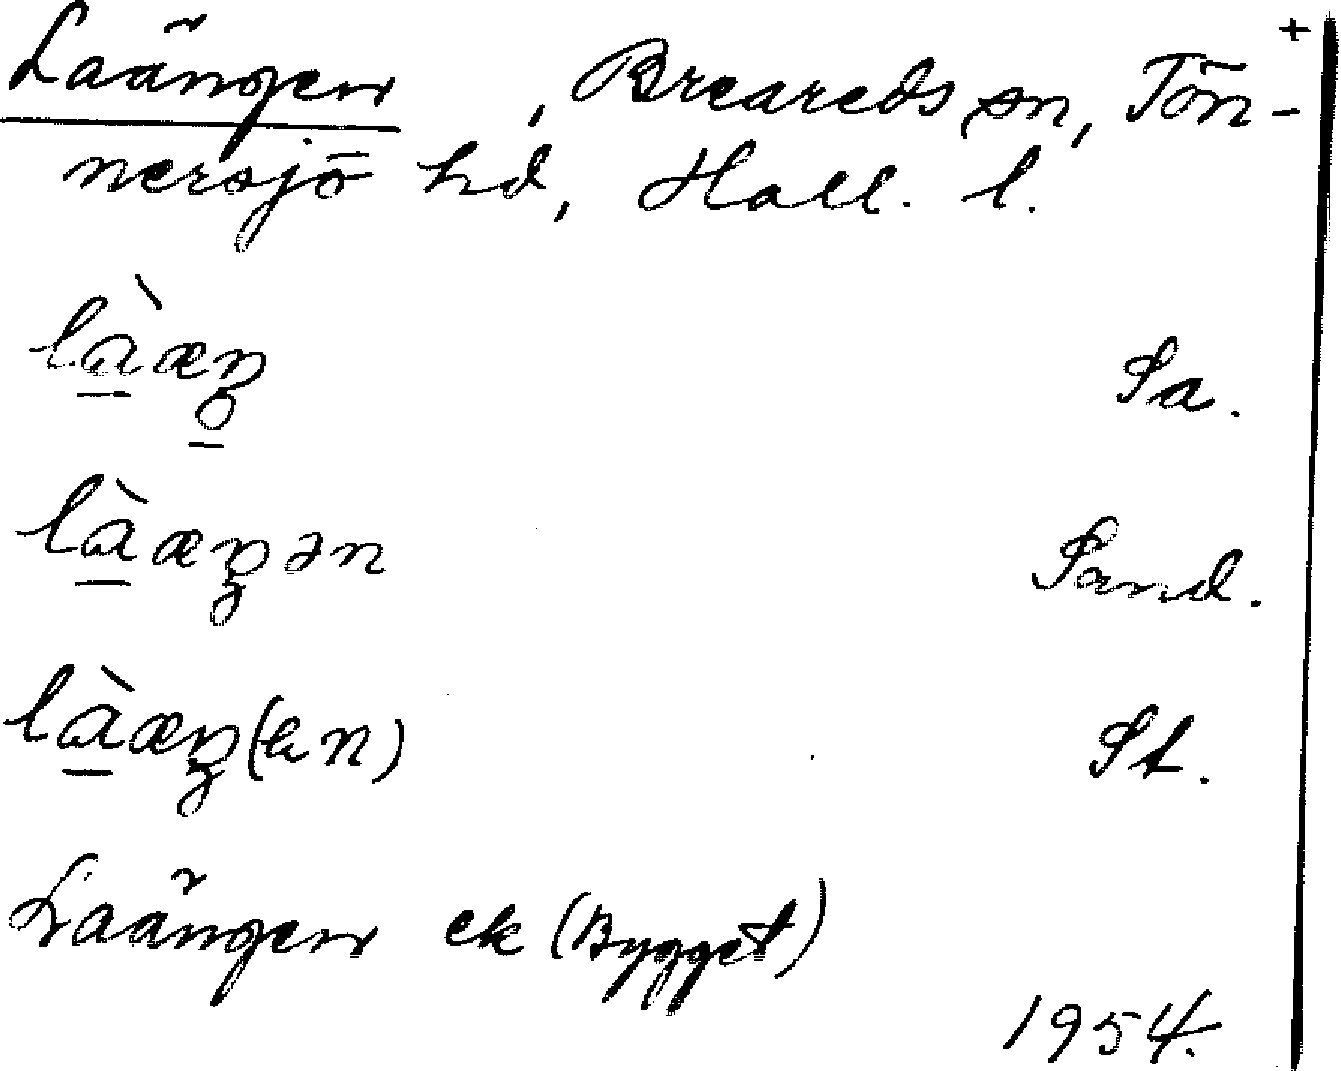 +
Laängen, Breareds sn, Tön-
nersjö hd, Hall. l.
là̱æŋ̱ Sa.
là̱æŋən Sand.
là̱æŋ(ən) St.
Laängen ek (Bygget)
1954.